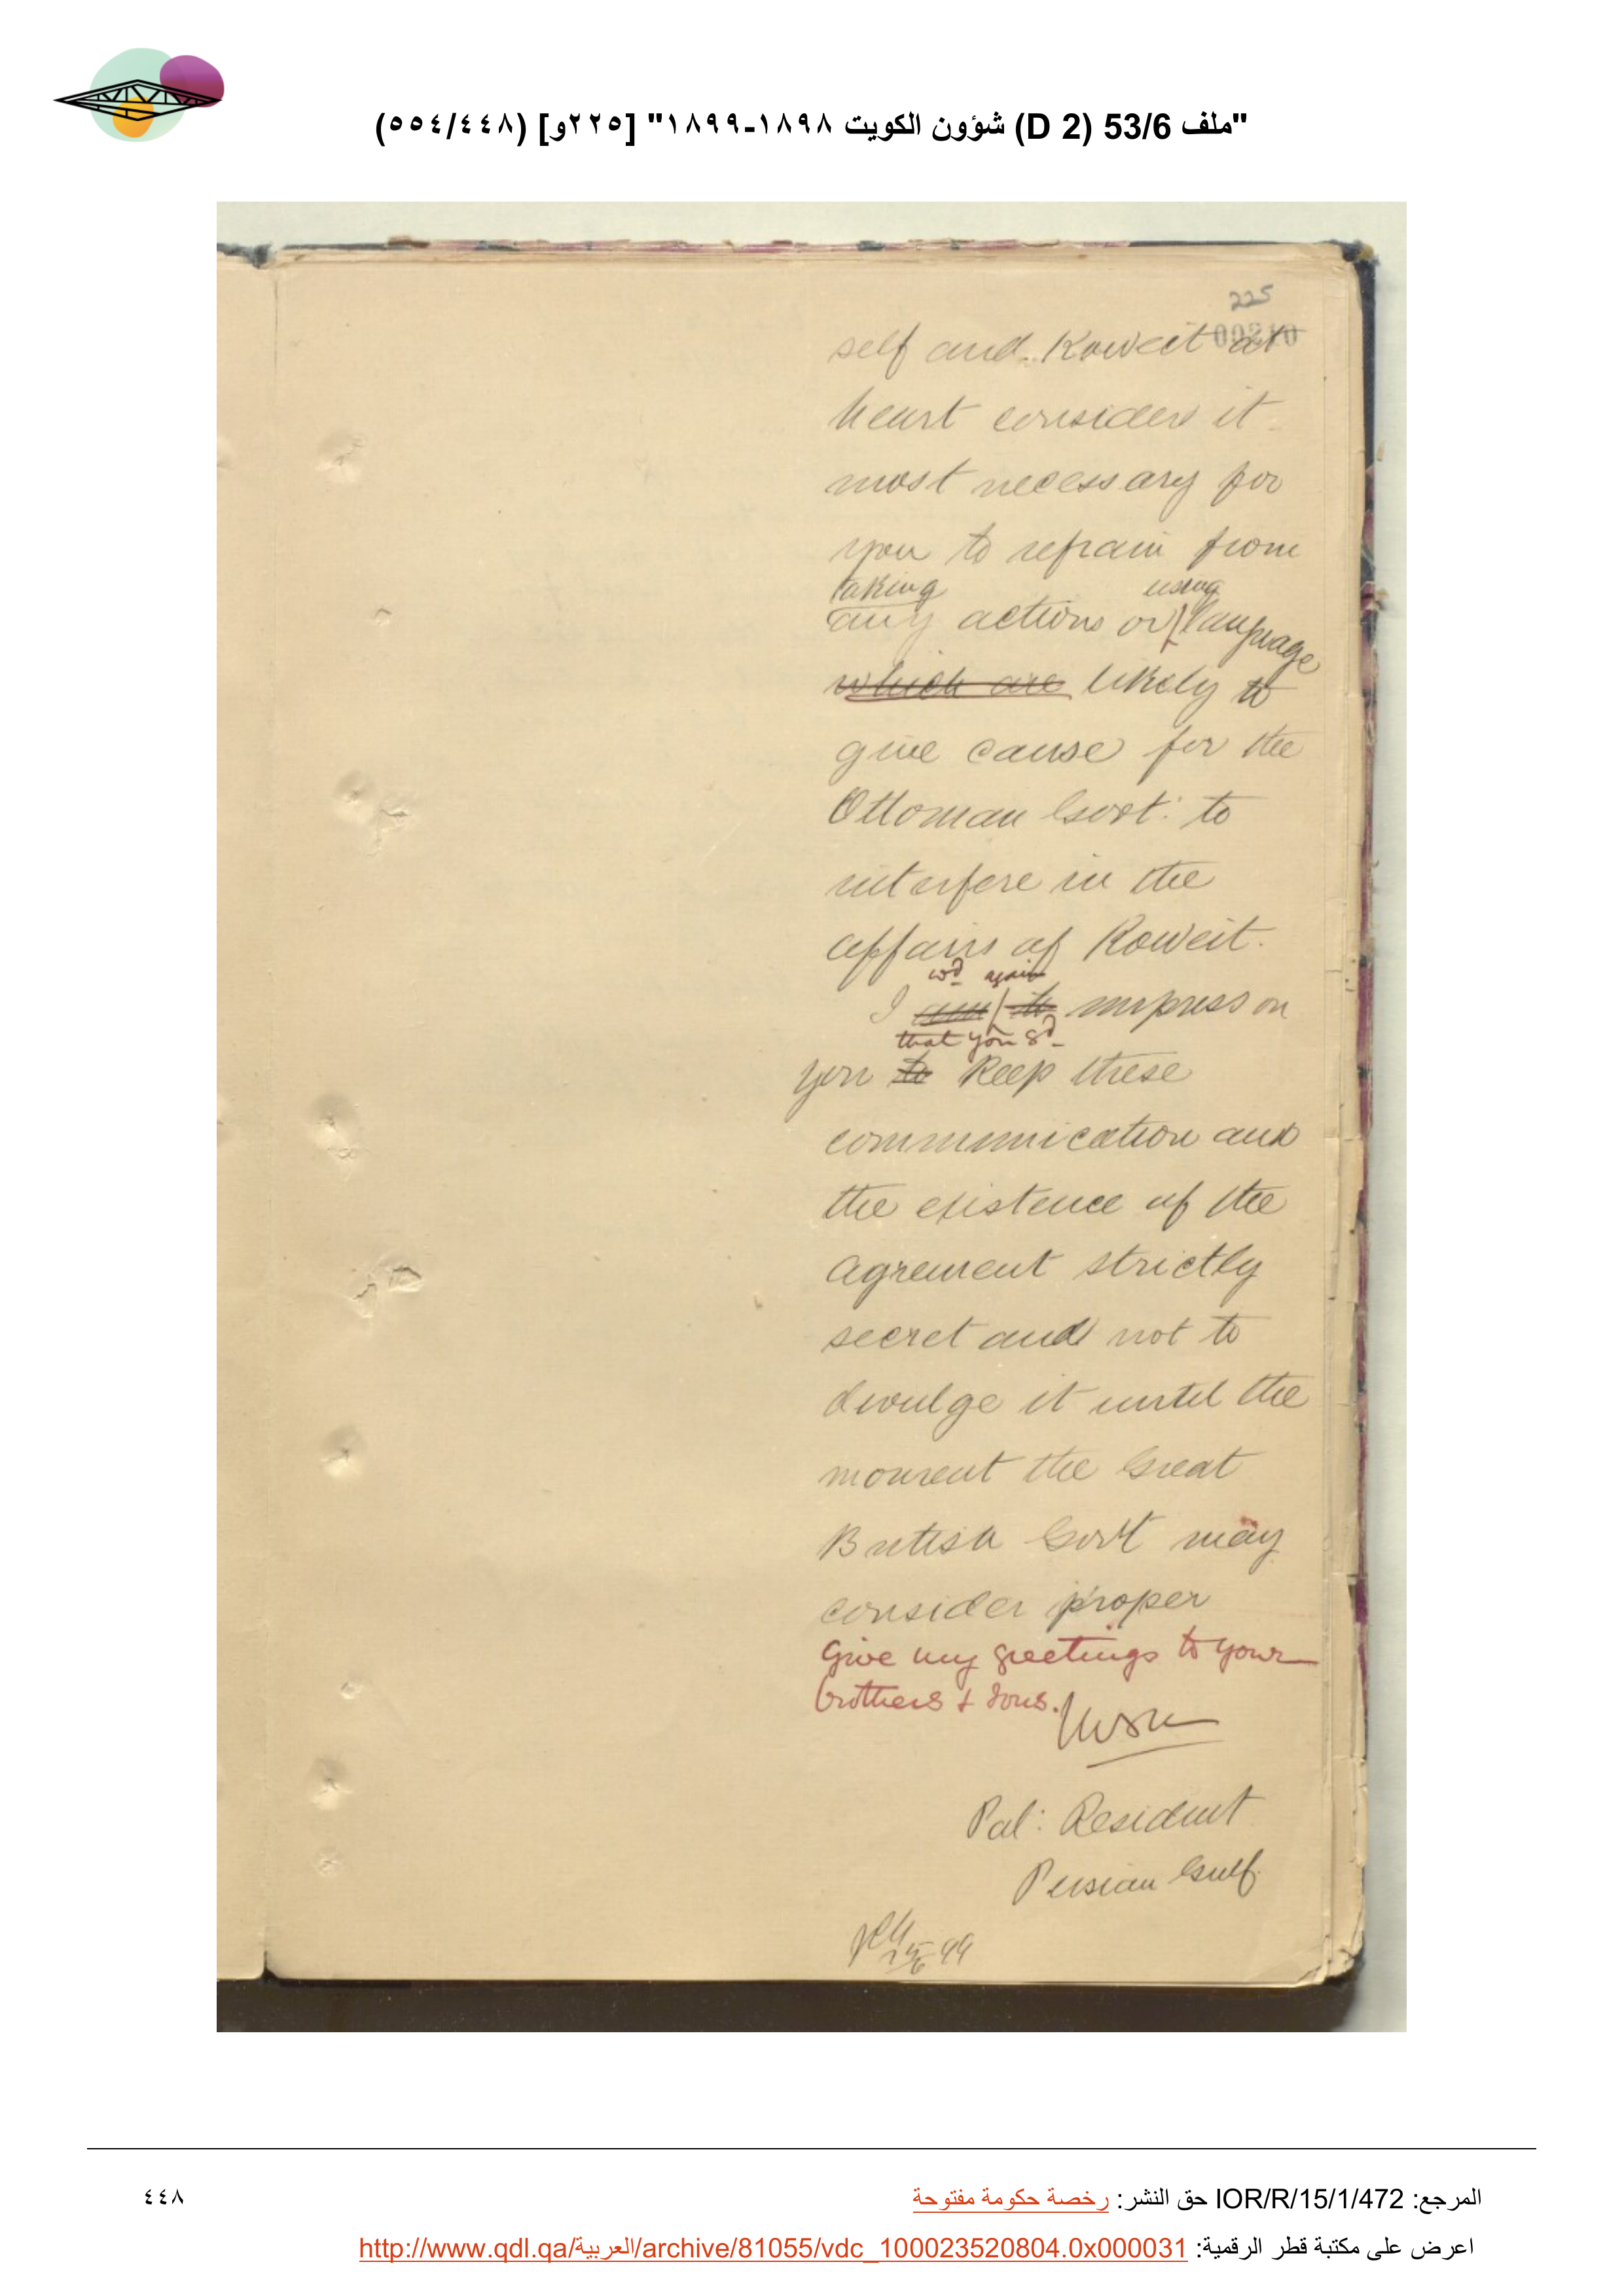 "ملف 53/6 (D 2) شؤون الكويت ١٨٩٨-١٨٩٩" [٢٢٥و] (٥٥٤/٤٤٨)
225
self and Koweit at
heart considers it
most necessary for
you to refrain from
taking using
any actions or language
which are likely to
give cause for the
Ottoman Govt: to
interfere in the
affairs of Koweit.
wd again
I am to impress on
that you sd
you to keep these
communication and
the existence of the
agrement strictly
secret and not to
divulge it until the
moment the Great
British Govt may
consider proper
Give my greetings to your
brothers & sons.
Pal: Resident
Persian Gulf
المرجع: IOR/R/15/1/472 حق النشر: رخصة حكومة مفتوحة
٤٤٨
اعرض على مكتبة قطر الرقمية: http://www.qdl.qa/العربية/archive/81055/vdc_100023520804.0x000031